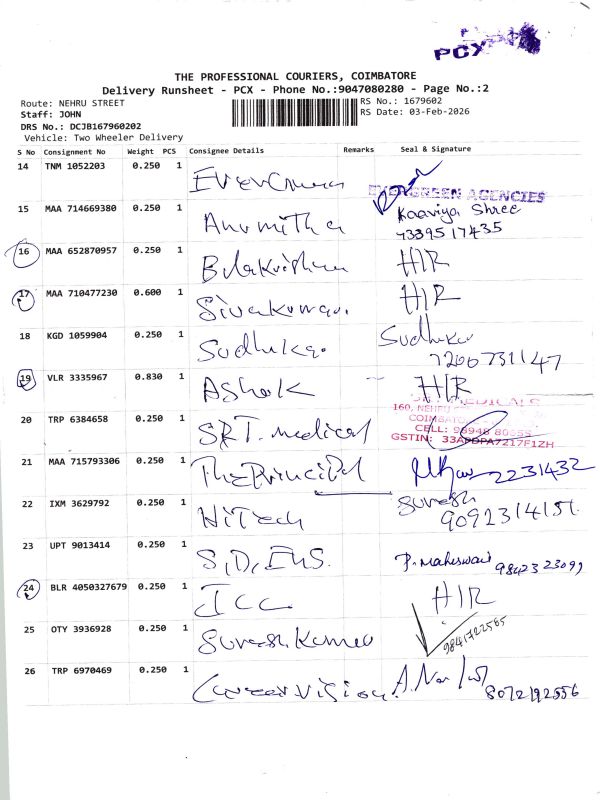 PCX
THE PROFESSIONAL COURIERS, COIMBATORE
Delivery Runsheet - PCX - Phone No.:9047080280 - Page No.:2
Route: NEHRU STREET RS No.: 1679602
Staff: JOHN RS Date: 03-Feb-2026
DRS No.: DCJB167960202
Vehicle: Two Wheeler Delivery
S No Consignment No Weight PCS Consignee Details Remarks Seal & Signature
14 TNM 1052203 0.250 1 Evergreen EVERGREEN AGENCIES
15 MAA 714669380 0.250 1 Anumitha Kaaviya Shree
7339517435
16 MAA 652870957 0.250 1 Balakrishnan H/R
17 MAA 710477230 0.600 1 Sivakumar. H/R
18 KGD 1059904 0.250 1 Sudhakar Sudhakar
7200731147
19 VLR 3335967 0.830 1 Ashok H/R
20 TRP 6384658 0.250 1 SRT. medical MEDICALS
160, NEHRU
COIMBATORE
CELL: 98948 80655
GSTIN: 33APDPA7217F1ZH
21 MAA 715793306 0.250 1 The Principal 2231432
22 IXM 3629792 0.250 1 HiTech Suresh
9092314151
23 UPT 9013414 0.250 1 S.D. Ens. P. Maheswari 9842323099
24 BLR 4050327679 0.250 1 ICC H/R
25 OTY 3936928 0.250 1 Suresh Kumar 9841722565
26 TRP 6970469 0.250 1 Career vision. 8072192556